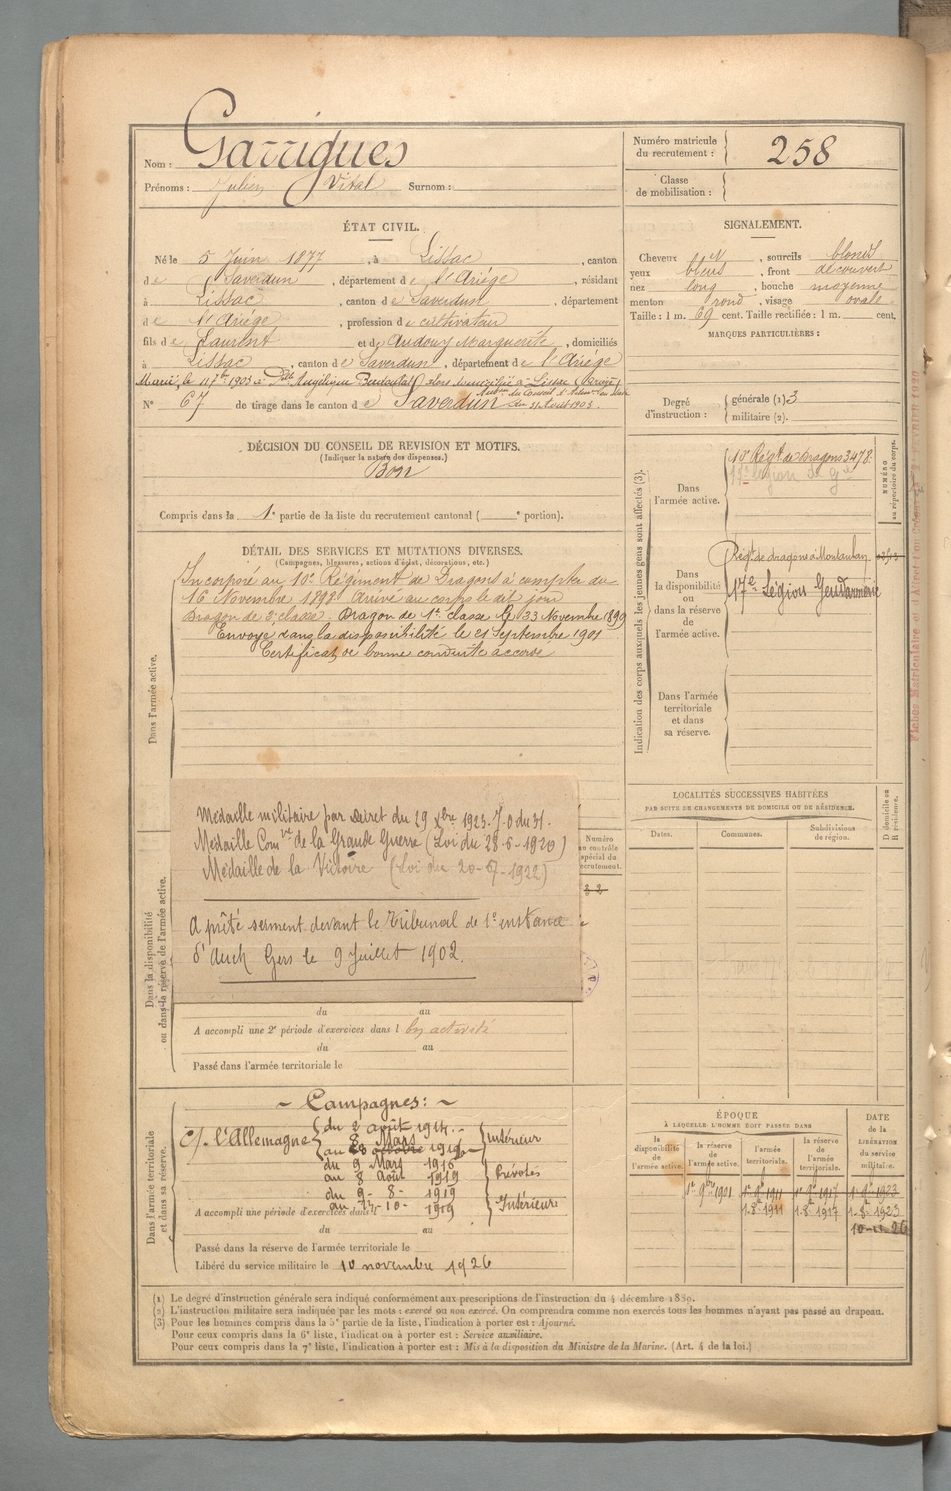 Nom : Garrigues
Prénoms : Julien Vital Surnom :
Numéro matricule du recrutement : 258
Classe de mobilisation :
ÉTAT CIVIL.
Né le 5 Juin 1877, à Lissac, canton
de Saverdun, département de l'Ariége, résidant
à Lissac, canton de Saverdun, département
de l'Ariége, profession de cultivateur
fils de Laurent et de Audouy Marguerite, domiciliés
à Lissac, canton de Saverdun, département de l'Ariége
Marié le 11 7bre 1903 à Dlle Angélique domiciliée à Lissac (Ariège)
du 11 Août 1903.
N° 67 de tirage dans le canton de Saverdun
SIGNALEMENT.
Cheveux N, sourcils blonds
yeux bleus, front découvert
nez long, bouche moyenne
menton rond, visage ovale
Taille : 1 m. 69 cent. Taille rectifiée : 1 m. cent.
MARQUES PARTICULIÈRES :
Degré d'instruction : générale (1) 3
militaire (2).
DÉCISION DU CONSEIL DE REVISION ET MOTIFS.
(Indiquer la nature des dispenses.)
Bon
Compris dans la 1e partie de la liste du recrutement cantonal ( e portion).
DÉTAIL DES SERVICES ET MUTATIONS DIVERSES.
(Campagnes, blessures, actions d'éclat, décorations, etc.)
Dans l'armée active.
Incorporé au 10e Régiment de Dragons à compter du
16 Novembre 1898 Arrivé au corps le dit jour
Dragon de 2e classe. Dragon de 1e classe le 23 Novembre 1899
Envoyé dans la disponibilité le 21 Septembre 1901
Certificat de bonne conduite accordé
Indication des corps auxquels les jeunes gens sont affectés (3).
NUMÉRO au répertoire du corps.
Dans l'armée active.
10e Régt de Dragons 3478.
17e Légion de Gie
Dans la disponibilité ou dans la réserve de l'armée active.
Régt de dragons à Montauban
17e Légion Gendarmerie
Dans l'armée territoriale et dans sa réserve.
Dans la disponibilité ou dans la réserve de l'armée active.
Médaille militaire par décret du 29 Xbre 1923. J.O du 31.
Médaille Comve de la Grande Guerre (Loi du 28-6-1920)
Médaille de la Victoire (Loi du 20-7-1922)
A prêté serment devant le Tribunal de 1e instance
d'Auch Gers le 9 Juillet 1902.
Numéro au contrôle spécial du recrutement.
du au
A accompli une 2e période d'exercices dans l en activité
du au
Passé dans l'armée territoriale le
LOCALITÉS SUCCESSIVES HABITÉES
PAR SUITE DE CHANGEMENTS DE DOMICILE OU DE RÉSIDENCE.
Dates. Communes. Subdivisions de région. D domicile ou R résidence.
Dans l'armée territoriale et dans sa réserve.
~ Campagnes : ~
C/. l'Allemagne
du 2 août 1914.
au 8 Mars 1916
Intérieur
du 9 Mars 1916
au 8 Août 1919
Prévotés
du 9 - 8 - 1919
au 10 - 1919
Intérieur
A accompli une période d'exercices dans
du au
Passé dans la réserve de l'armée territoriale le
Libéré du service militaire le 10 novembre 1926
ÉPOQUE
À LAQUELLE L'HOMME DOIT PASSER DANS
la disponibilité de l'armée active.
la réserve de l'armée active.
l'armée territoriale.
la réserve de l'armée territoriale.
DATE de la LIBÉRATION du service militaire.
1er 9bre 1901 1er 9e 1911 1er 9e 1917 1er 9e 1923
1.8e 1911 1.8e 1917 1.8e 1923
10-11-26
(1) Le degré d'instruction générale sera indiqué conformément aux prescriptions de l'instruction du 4 décembre 1889.
(2) L'instruction militaire sera indiquée par les mots : exercé ou non exercé. On comprendra comme non exercés tous les hommes n'ayant pas passé au drapeau.
(3) Pour les hommes compris dans la 5e partie de la liste, l'indication à porter est : Ajourné.
Pour ceux compris dans la 6e liste, l'indication à porter est : Service auxiliaire.
Pour ceux compris dans la 7e liste, l'indication à porter est : Mis à la disposition du Ministre de la Marine. (Art. 4 de la loi.)